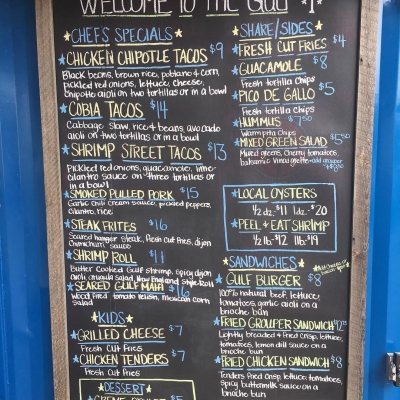 WELCOME TO THE GULF
CHEFS SPECIALS
CHICKEN CHIPOTLE TACOS $9
Black beans, brown rice, poblano & corn,
pickled red onions, lettuce, cheese,
Chipotle aioli on two tortillas or in a bowl
COBIA TACOS $14
Cabbage Slaw, rice & beans, avocado
aioli on two tortillas or in a bowl
SHRIMP STREET TACOS $13
Pickled red onions, guacamole, lime-
cilantro sauce on three tortillas or
in a bowl
SMOKED PULLED PORK $15
Garlic chili cream sauce, pickled peppers,
cilantro, rice
STEAK FRITES $16
Seared hanger steak, fresh cut fries, dijon
chimichurri sauce
SHRIMP ROLL $11
Butter cooked Gulf shrimp, spicy dijon
aioli, New England Style Roll
SEARED GULF MAHI $16
Wood fired tomato relish, Mexican corn
Salad
KIDS
GRILLED CHEESE $7
Fresh Cut Fries
CHICKEN TENDERS $7
Fresh Cut Fries
DESSERT
$5
SHARE/SIDES
FRESH CUT FRIES $4
GUACAMOLE $8
Fresh tortilla Chips
PICO DE GALLO $5
Fresh tortilla Chips
HUMMUS $7.50
Warm pita Chips
MIXED GREEN SALAD $5.50
Mixed greens, Cherry tomatoes,
balsamic Vinaigrette -add grouper
LOCAL OYSTERS
1/2 dz. $11 1dz. $20
PEEL & EAT SHRIMP
1/2 lb. $12 1lb. $19
SANDWICHES
GULF BURGER $8
100% natural beef, lettuce,
tomatoes, garlic aioli on a
brioche bun
FRIED GROUPER SANDWICH
Lightly breaded & fried crisp, lettuce,
tomatoes, lemon dill sauce on a
brioche bun
FRIED CHICKEN SANDWICH $8
Tenders fried crisp, lettuce, tomatoes,
spicy buttermilk sauce on a
brioche bun